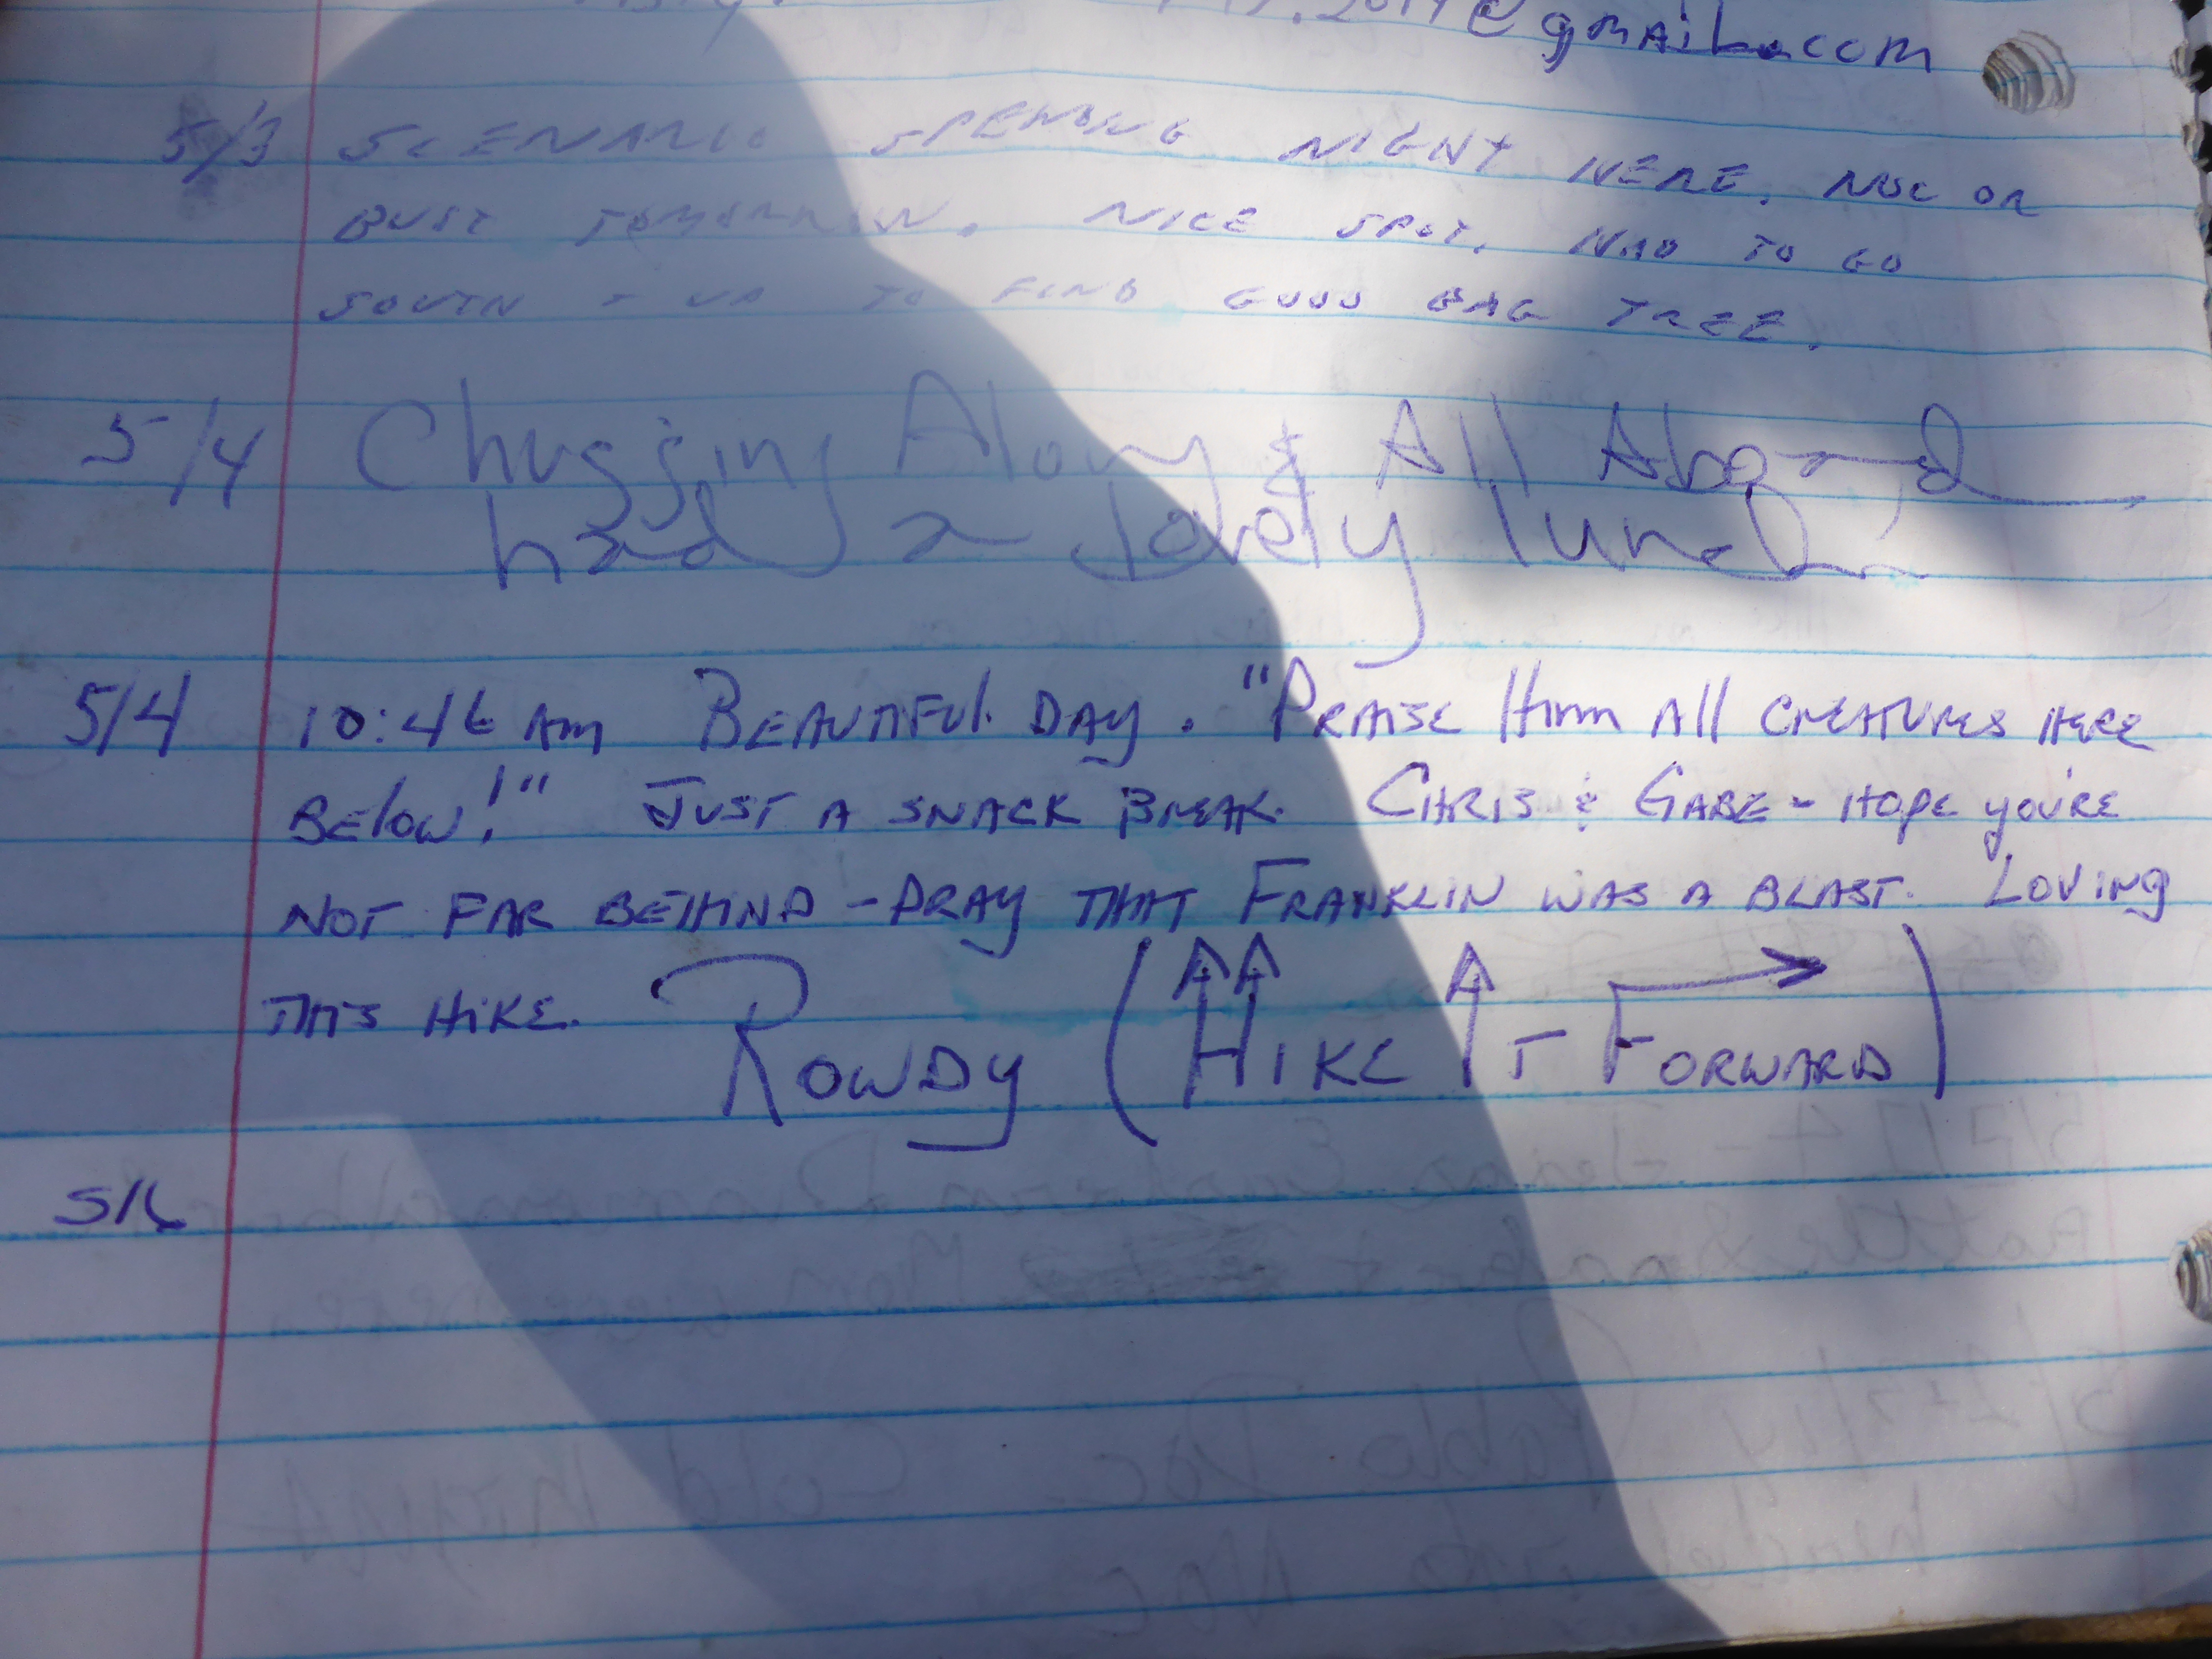 @gmail.com
5/3 SCENARIO SPENDING NIGHT HERE. NOC OR
BUST TOMORROW. NICE SPOT. HAD TO GO
SOUTH + UP TO FIND GOOD BAG TREE.
5/4 Chugging Along & All Aboard
had a lovely lunch
5/4 10:46 AM BEAUTIFUL DAY. "PRAISE HIM All CREATURES HERE
BElow!" JUST A SNACK BREAK. CHRIS & GABE - HOPE you'RE
NOT FAR BEHIND - PRAY THAT FRANKLIN WAS A BLAST. LOVING
THIS HIKE. ROWDY (HIKE IT FORWARD)
5/6